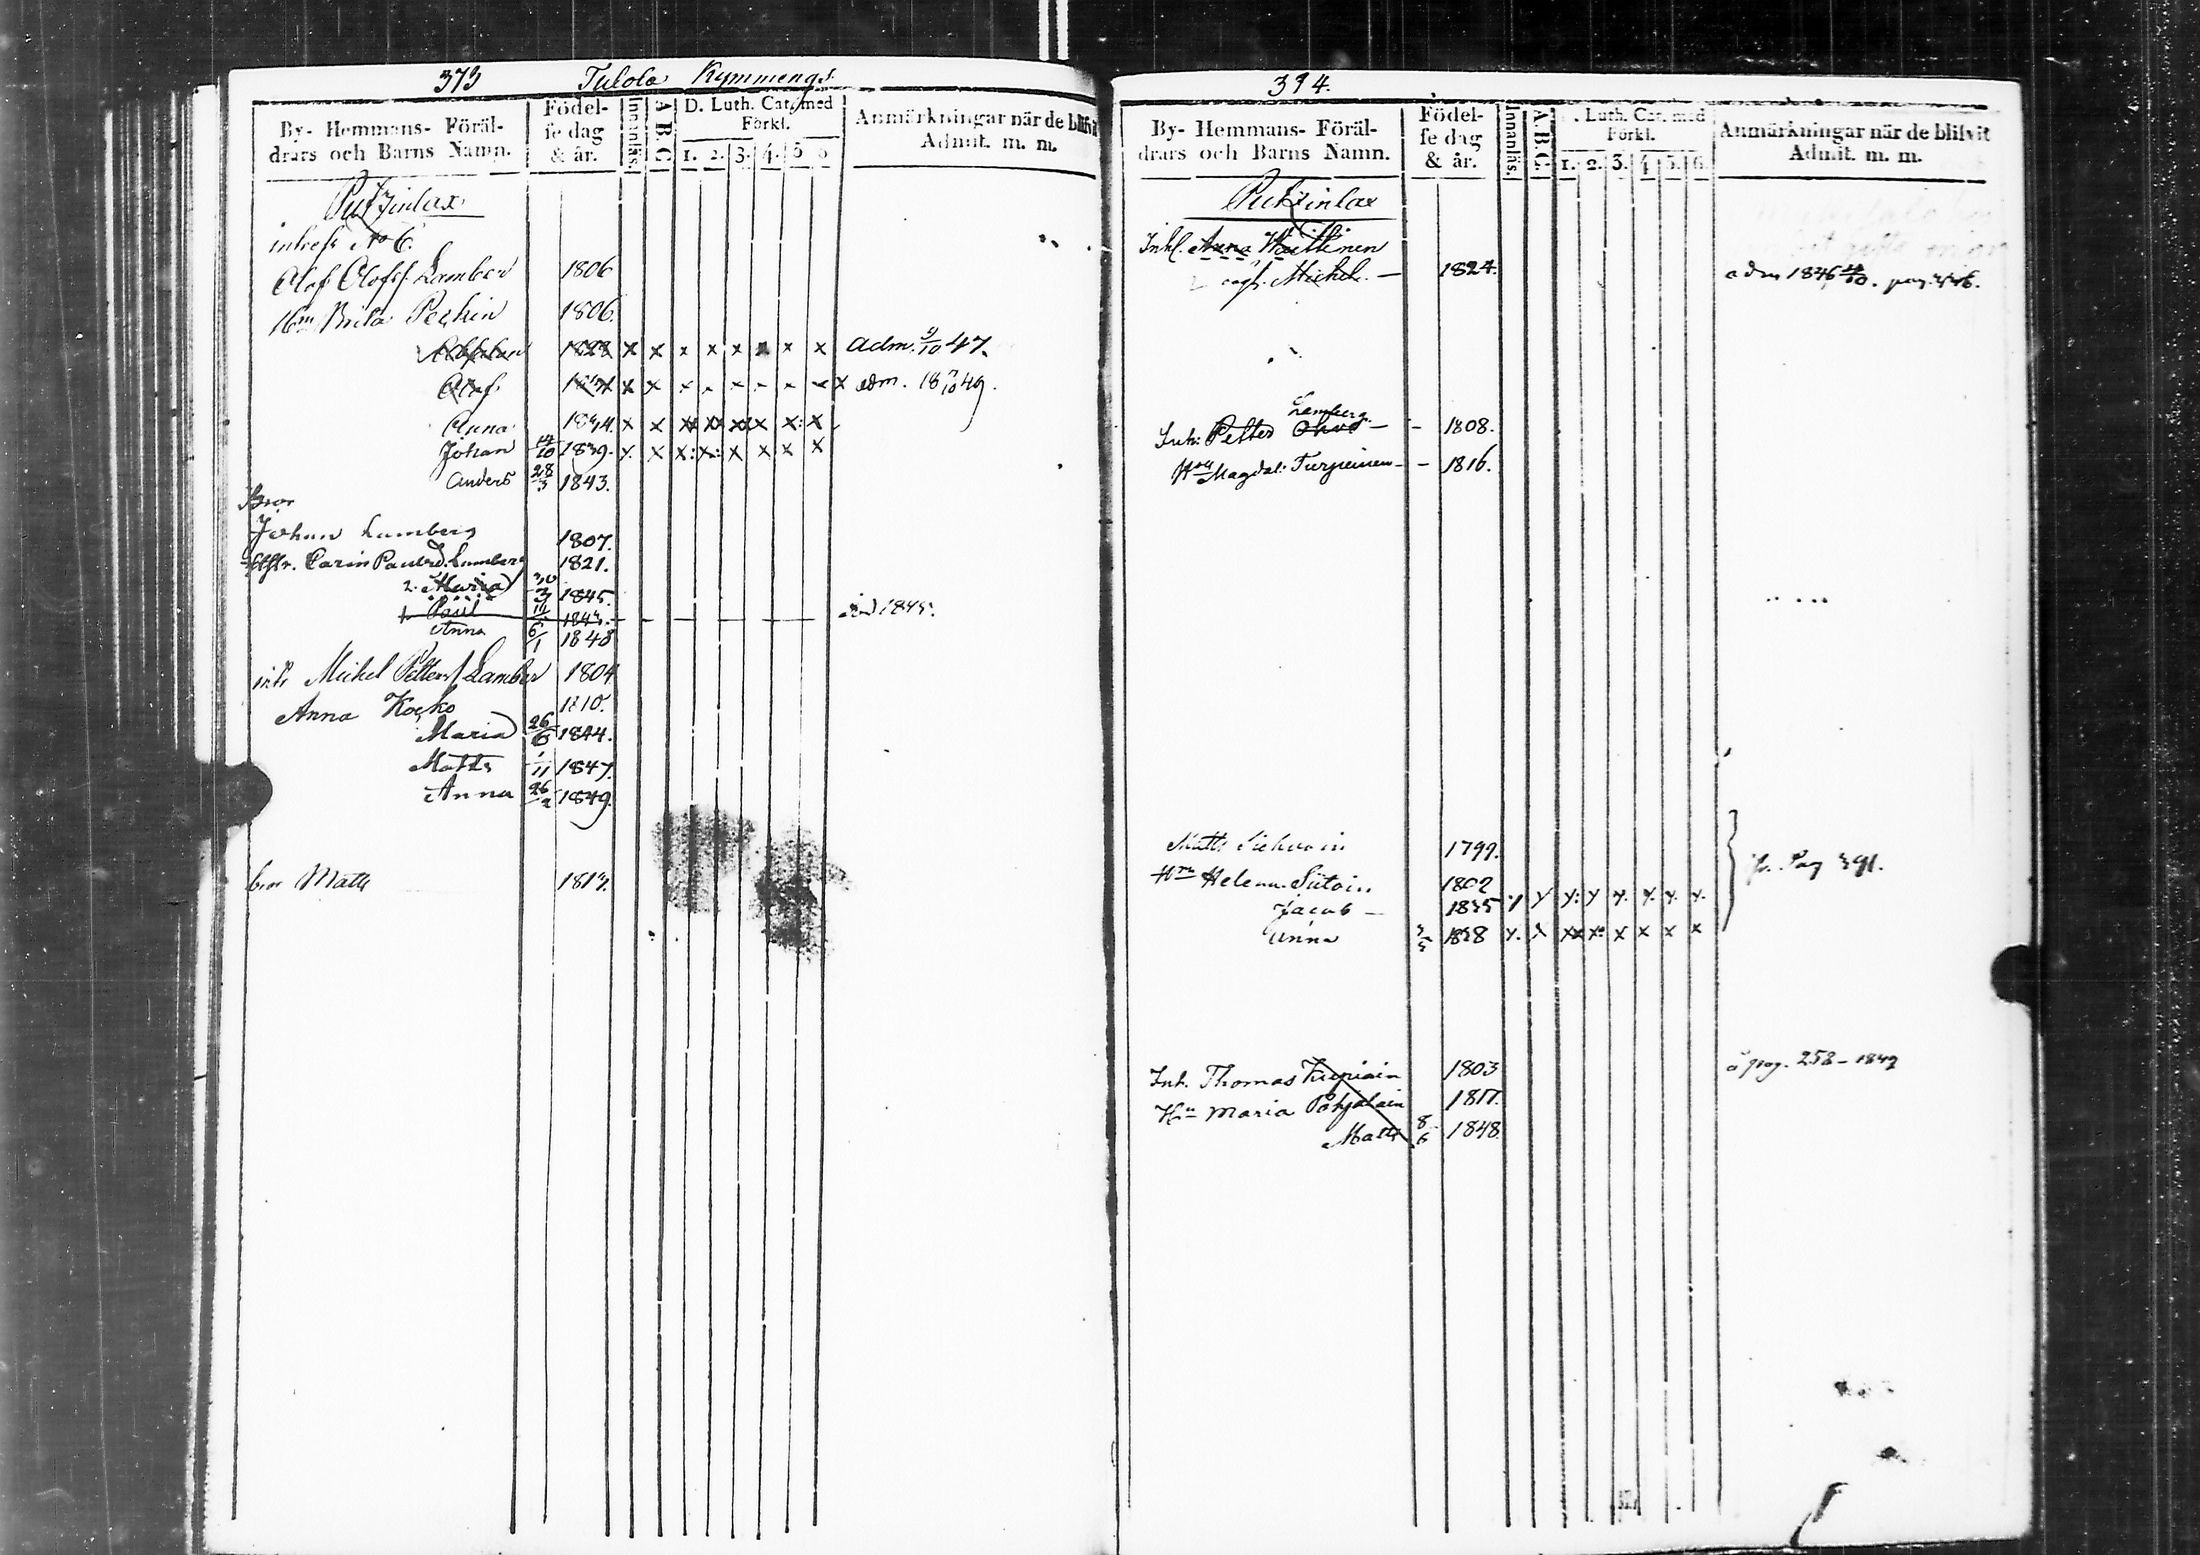 373 Tulola Kymmeneg.
By- Hemmans- Föräl-
drars och Barns Namn.
Födel-
se dag
& år.
Innanläs.
A B C
D. Luth. Cat. med
Förkl.
1. 2. 3. 4. 5 6
Anmärkningar när de blifvit
Admit. m. m.
Putzinlax
No 6.
Olof Olofss. Lamber 1806
Brita Peckin 1806.
1828 x x x x x x x adm. 9/10 47.
Olof x x adm. 18 49.
Anna 1834. x x x x x x x x
Johan 14/10 1839. x x x x x x x x
Anders 28/3 1843.
Bror
Johan Lamberg 1807.
Carin Paulsd. Lamberg 1821.
2. Maria 30/3 1845.
1 Paul 1844.
Anna 6/1 1848
Michel Petterss Lamber 1804
Anna Kocko 1810.
Maria 26/6 1844.
Matts /11 1847.
Anna 26/2 1849.
bror Matts 1813.
394.
By- Hemmans- Föräl-
drars och Barns Namn.
Födel-
se dag
& år.
Innanläs.
A. B. C.
. Luth. Cat. med
Förkl.
1. 2. 3. 4 5. 6.
Anmärkningar när de blifvit
Admit. m. m.
Putzinlax
Inh. Anna Waittinen
Michel. – 1824. adm 1846 pag. 446.
Lamberg
Inh. Petter – – 1808.
Magdal: Turpeinen – – 1816.
Matts 1799.
Helena Siitoin 1802
Jacob – 1835
Anna 1838 x x x x x x x
Pag 391.
Inh. Thomas 1803 å pag. 258 – 1849
Hu Maria Pohjalain 1817.
Matts 8/6 1848.